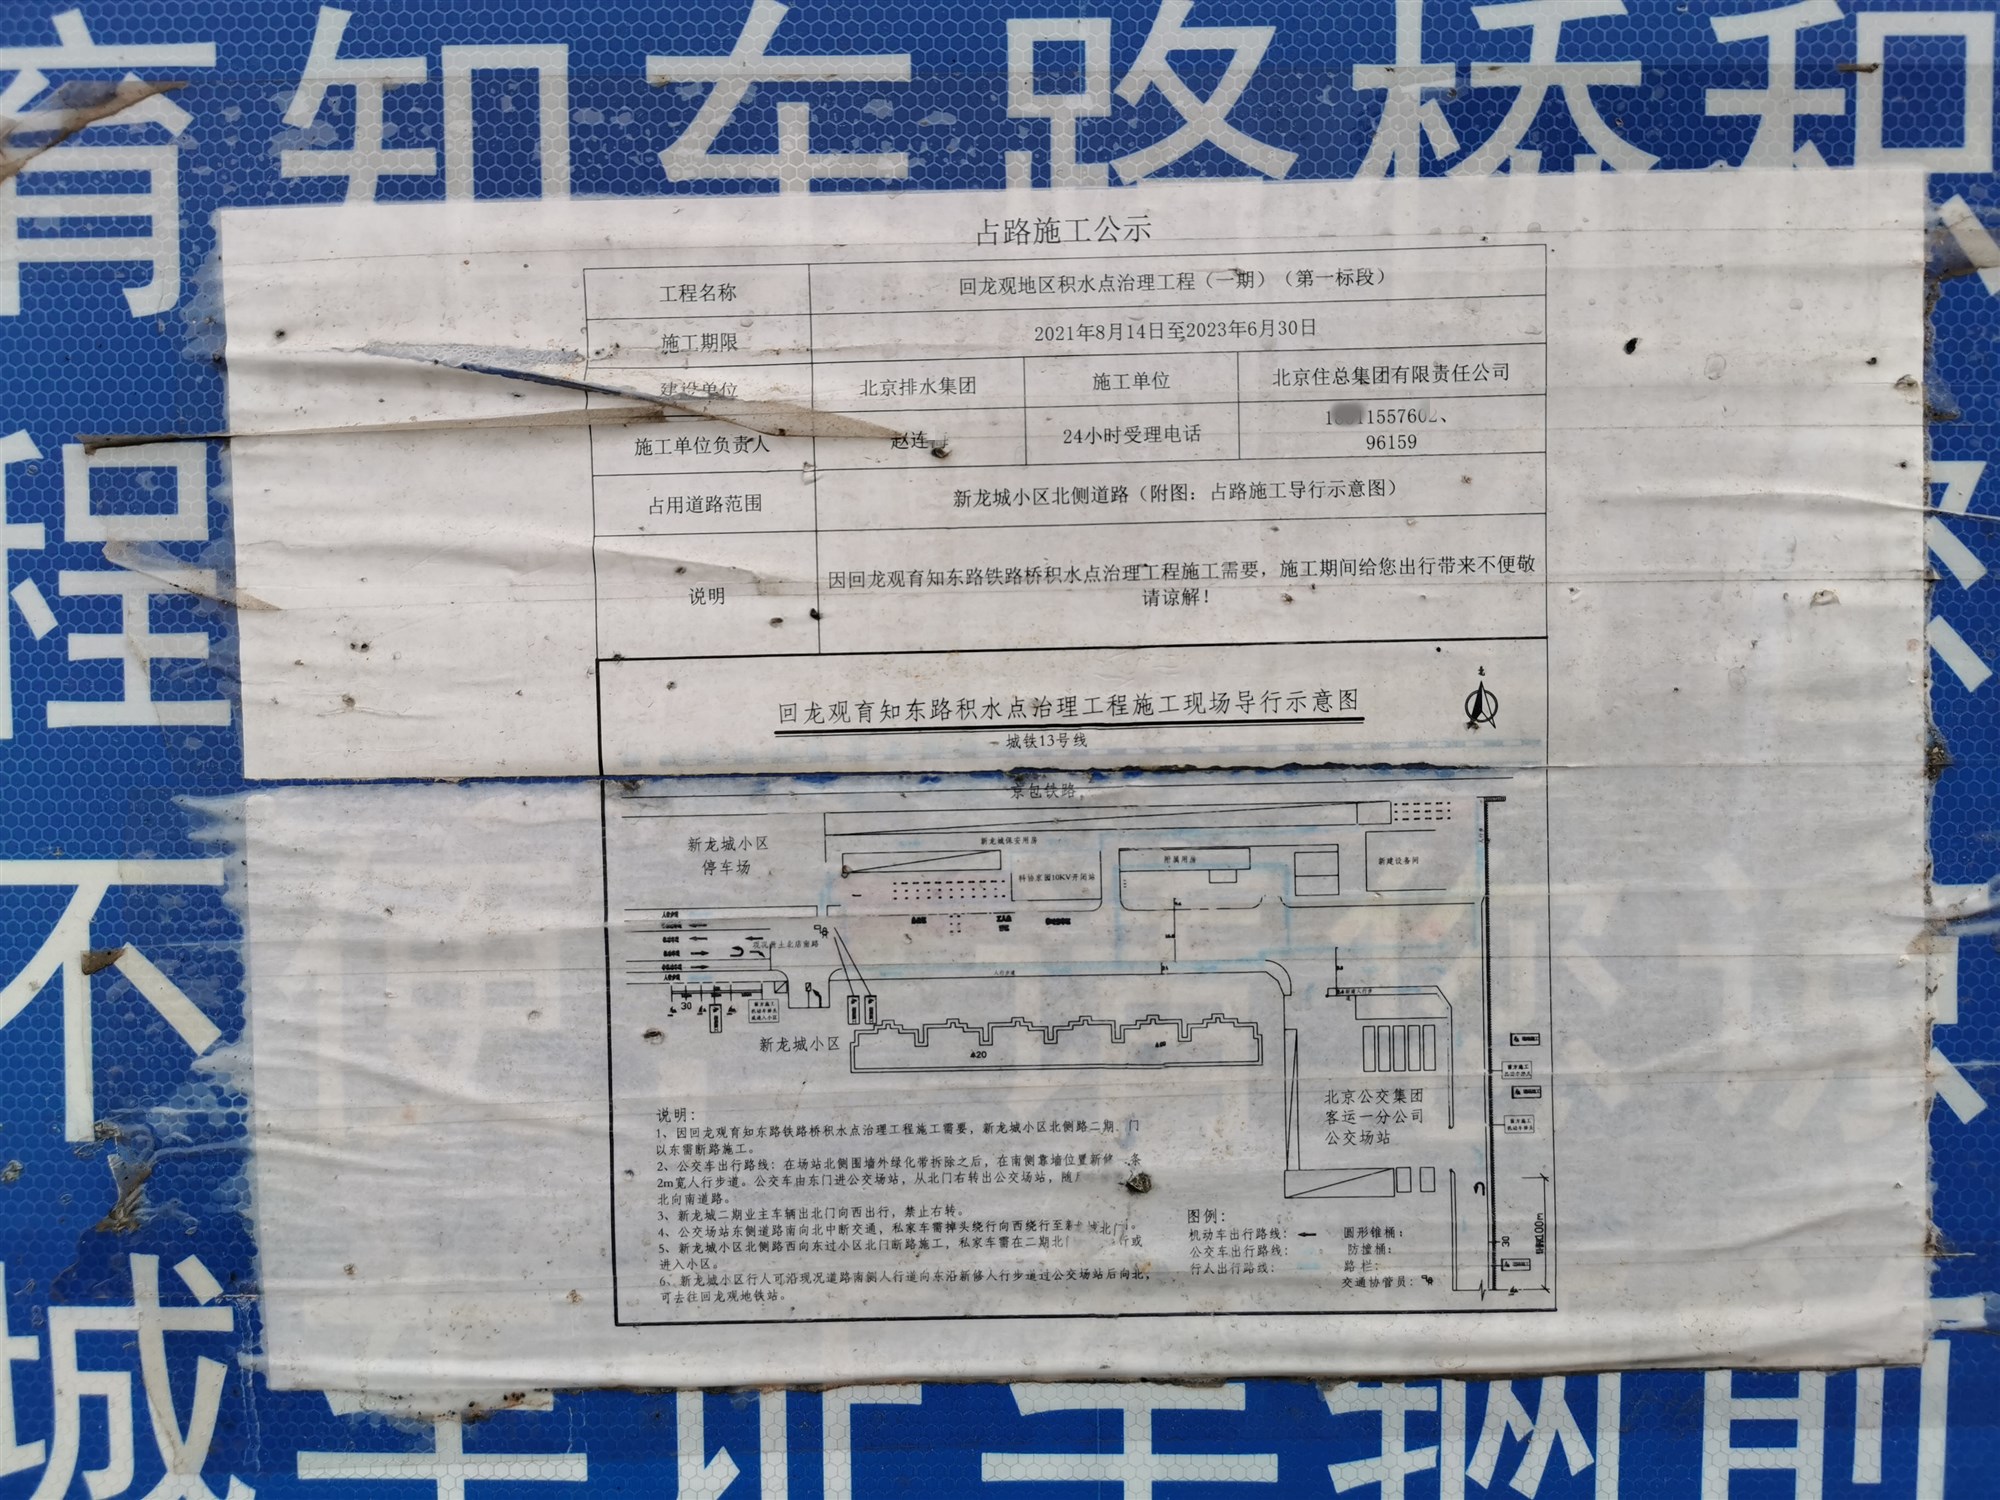 育知东路桥积
程
不
城
占路施工公示
工程名称 回龙观地区积水点治理工程（一期）（第一标段）
施工期限 2021年8月14日至2023年6月30日
建设单位 北京排水集团 施工单位 北京住总集团有限责任公司
施工单位负责人 赵连 24小时受理电话 11557602、
96159
占用道路范围 新龙城小区北侧道路（附图：占路施工导行示意图）
说明 因回龙观育知东路铁路桥积水点治理工程施工需要，施工期间给您出行带来不便敬
请谅解！
北
回龙观育知东路积水点治理工程施工现场导行示意图
城铁13号线
京包铁路
新龙城小区
停车场
新龙城保安用房
科协家园10KV开闭站
附属用房
新建设备间
人行步道
人行步道
人行步道
30
新龙城小区
20
北京公交集团
客运一分公司
公交场站
30
说明：
1、因回龙观育知东路铁路桥积水点治理工程施工需要，新龙城小区北侧路二期 门
以东需断路施工。
2、公交车出行路线：在场站北侧围墙外绿化带拆除之后，在南侧靠墙位置新修 条
2m宽人行步道。公交车由东门进公交场站，从北门右转出公交场站，随
北向南道路。
3、新龙城二期业主车辆出北门向西出行，禁止右转。
4、公交场站东侧道路南向北中断交通，私家车需掉头绕行向西绕行至新龙城北门 。
5、新龙城小区北侧路西向东过小区北门断路施工，私家车需在二期北 行或
进入小区。
6、新龙城小区行人可沿现况道路南侧人行道向东沿新修人行步道过公交场站后向北，
可去往回龙观地铁站。
图例：
机动车出行路线： 圆形锥桶：
公交车出行路线： 防撞桶：
行人出行路线： 路栏：
交通协管员：